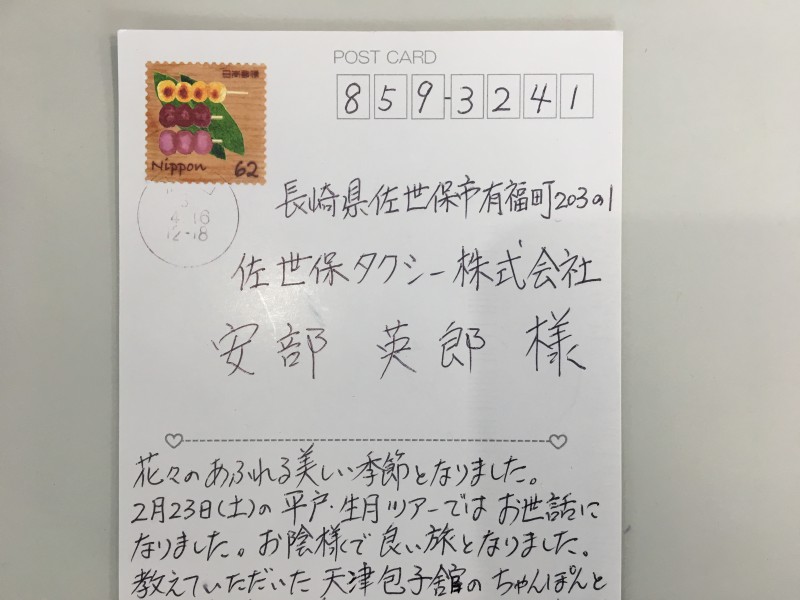 POST CARD
日本郵便
Nippon 62
859-3241
4 16
12-18
長崎県佐世保市有福町203の1
佐世保タクシー株式会社
安部 英郎 様
花々のあふれる美しい季節となりました。
2月23日(土)の平戸・生月ツアーではお世話に
なりました。お陰様で良い旅となりました。
教えていただいた天津包子舘のちゃんぽんと